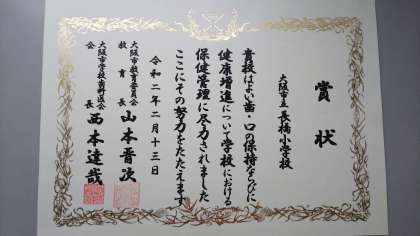 賞状
大阪市立長橋小学校
貴校はよい歯・口の保持ならびに
健康増進について学校における
保健管理に尽力されました
ここにその努力をたたえます
令和二年二月十三日
大阪市教育委員会
教育長 山本晋次
大阪市学校歯科医会
会長 西本達哉